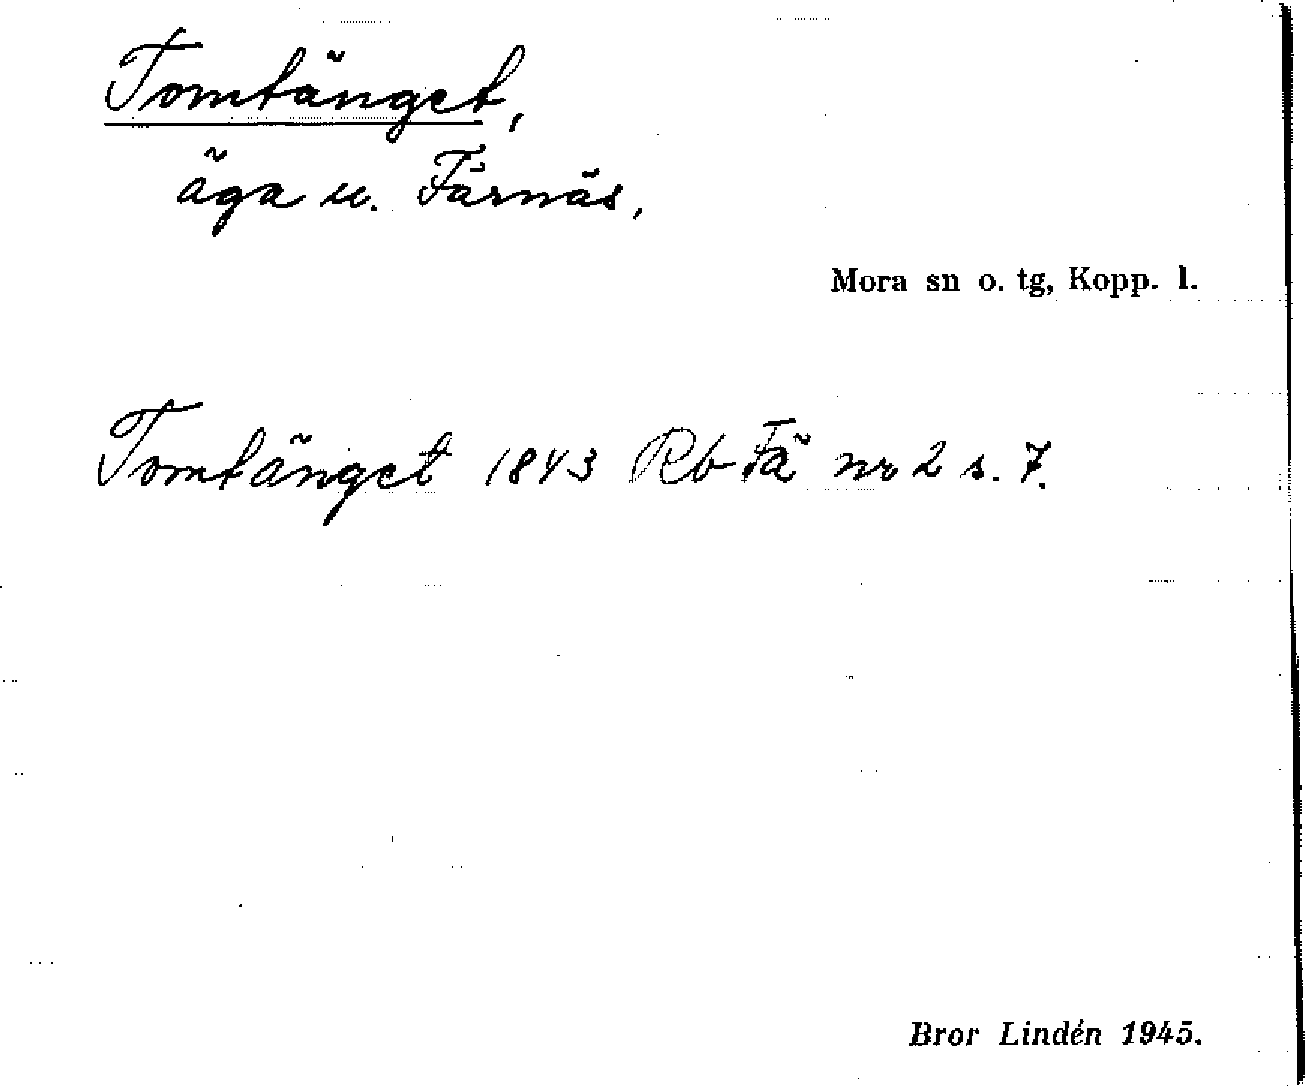 Tomtänget,
äga u. Färnäs,
Mora sn o. tg, Kopp. l.
Tomtänget 1843 Rb Fä nr 2 s. 7.
Bror Lindén 1945.